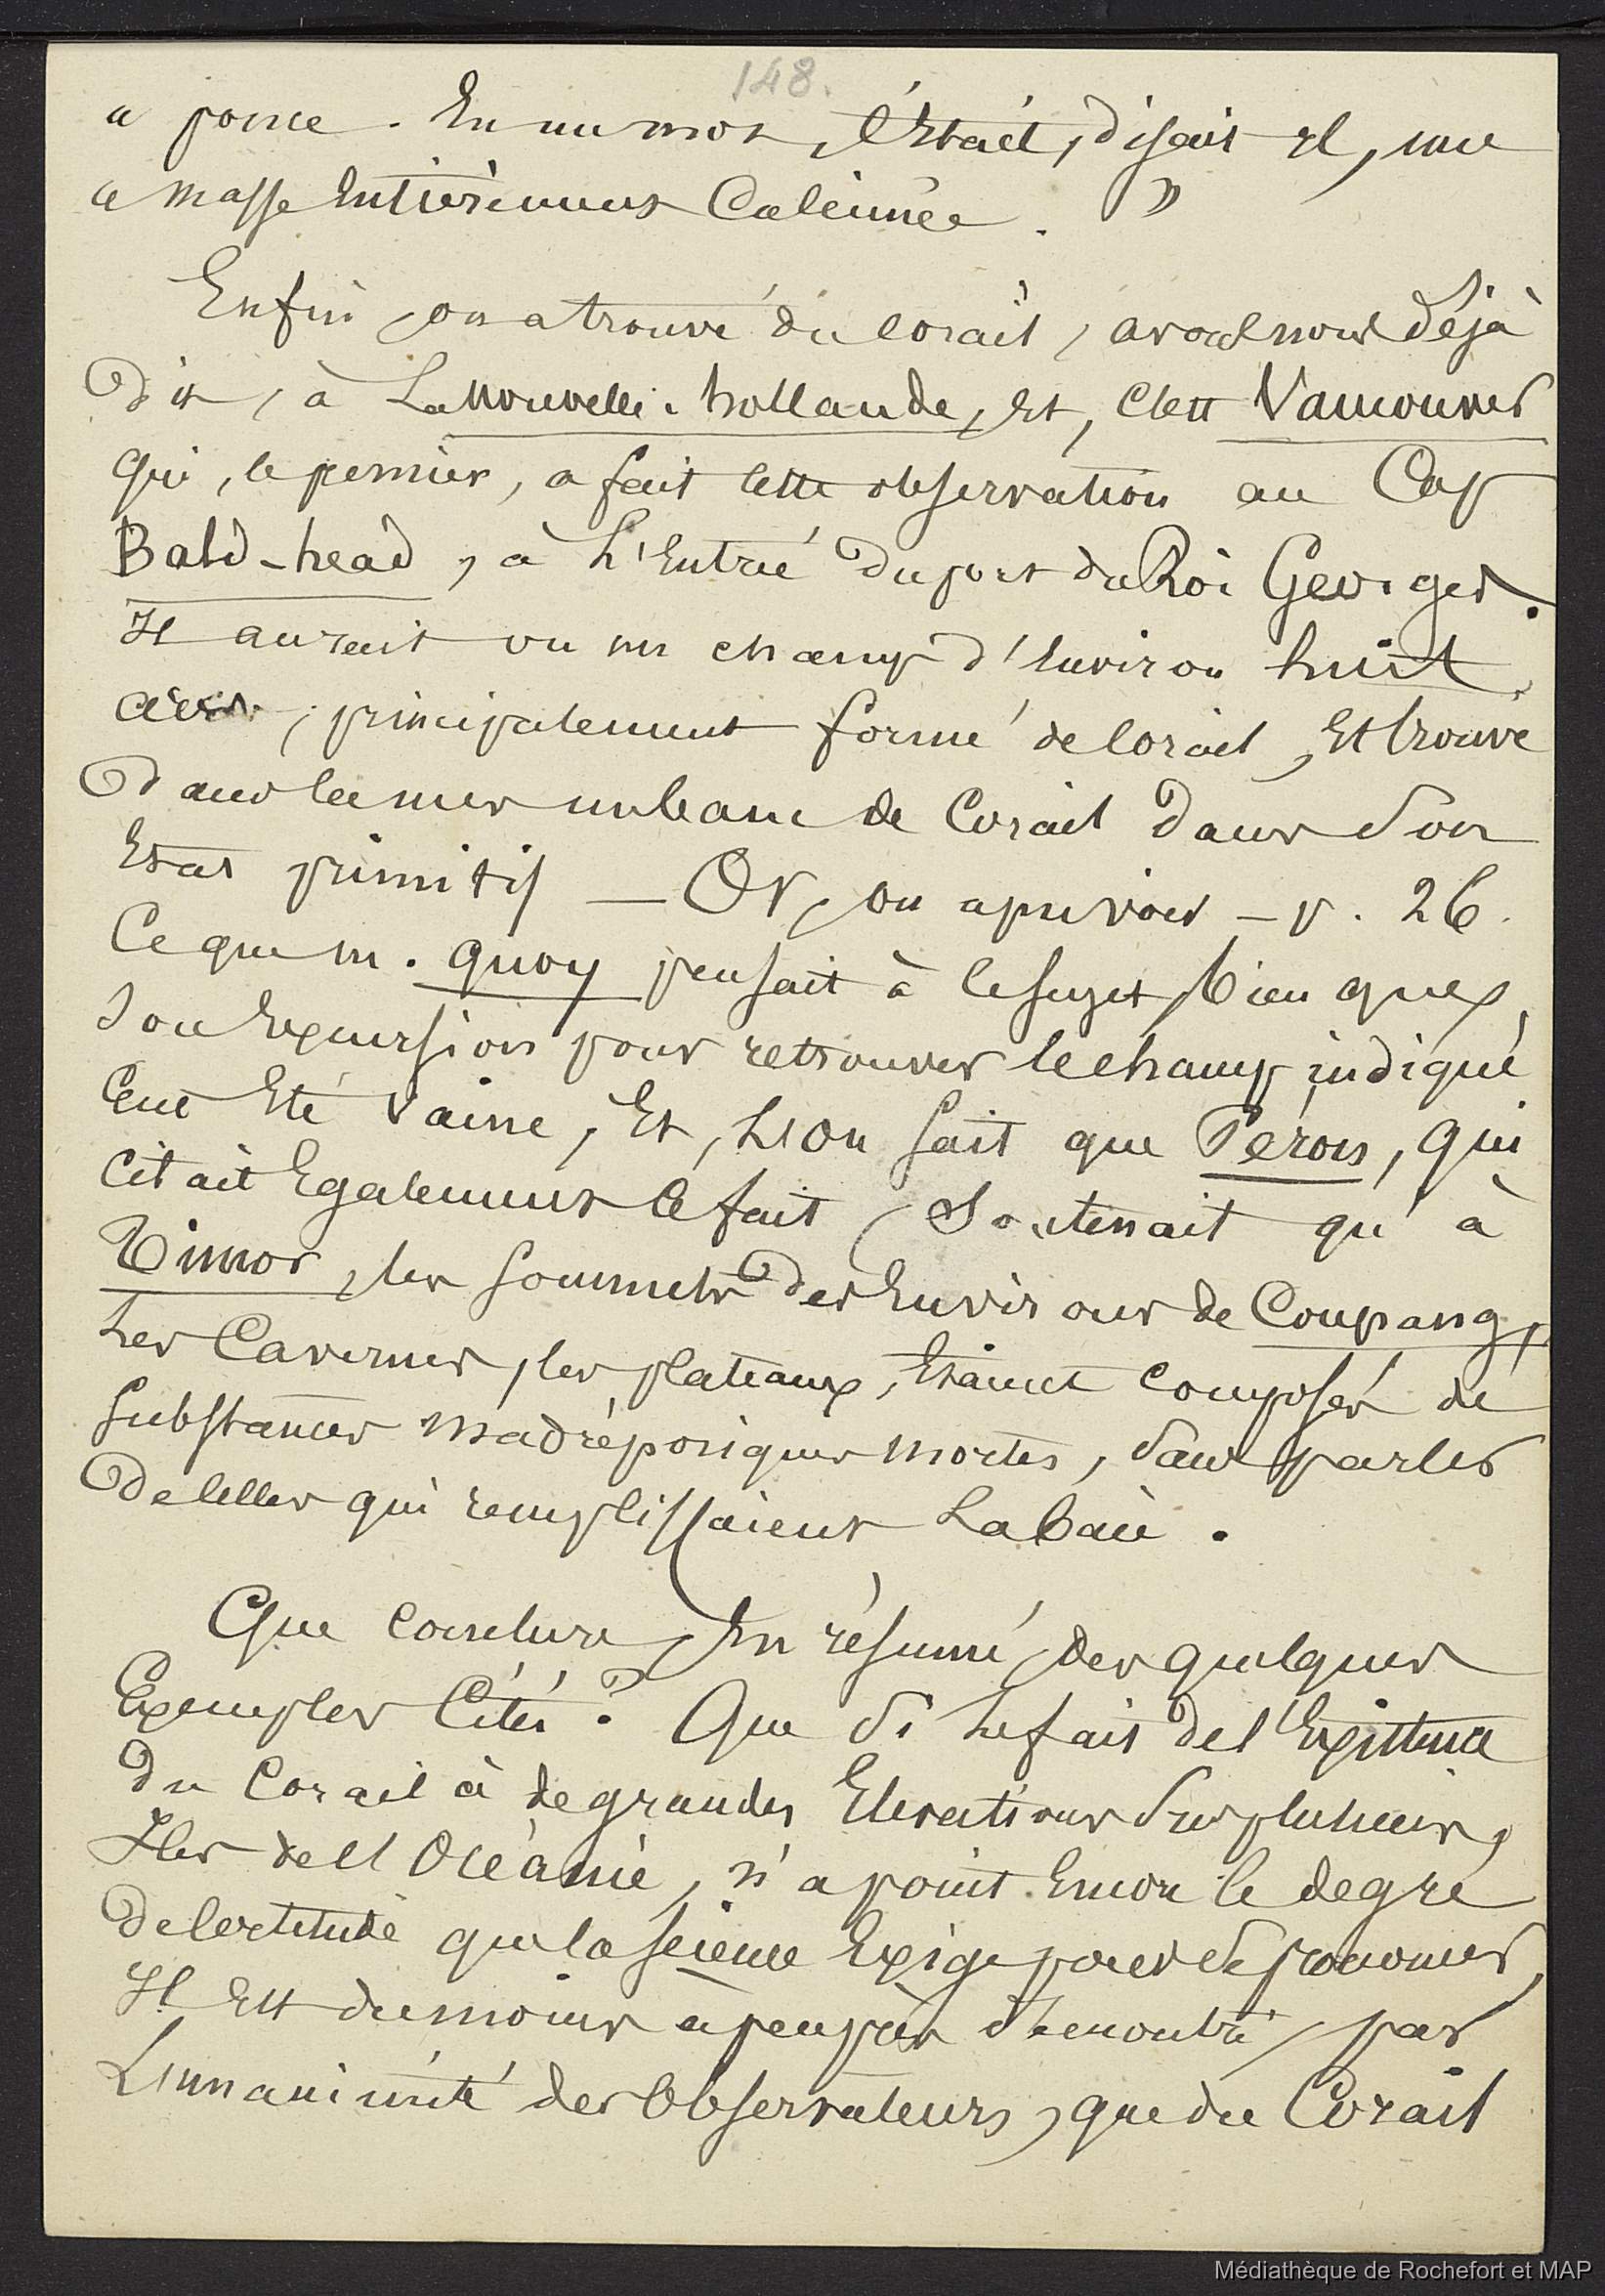 148.
« ponce. En un mot, c'était, disait-il, une
« masse entièrement calcinée. »
Enfin, on a trouvé du corail, avons nous déjà
dit, à La Nouvelle-hollande, et, c'est Vancouver
qui, le premier, a fait cette observation au Cap
Bald-head, à l'entrée du port du Roi Georges.
Il aurait vu un champ d'environ huit
acres, principalement formé de corail, et trouvé
dans la mer un banc de corail dans son
état primitif — Or, on a pu voir — p. 26.
Ce que m. Quoy pensait à ce sujet, bien que
son excursion pour retrouver le champ indiqué
eut été vaine, et, l'on sait que Péron, qui
citait également ce fait, soutenait qu'à
Timor, les sommets des environs de Coupang,
les cavernes, les plateaux, étaient composés de
substances madréporiques mortes, sans parler
de celles qui remplissaient la baie.
Que conclure, en résumé, des quelques
exemples cités ? Que si le fait de l'existence
du corail à de grandes élévations sur plusieurs
Iles de l'Océanie, n'a point encore le degré
de certitude que la science exige pour se prononcer,
Il est du moins à peu près démontré, par
L'unanimité des observateurs, que du corail
Médiathèque de Rochefort et MAP